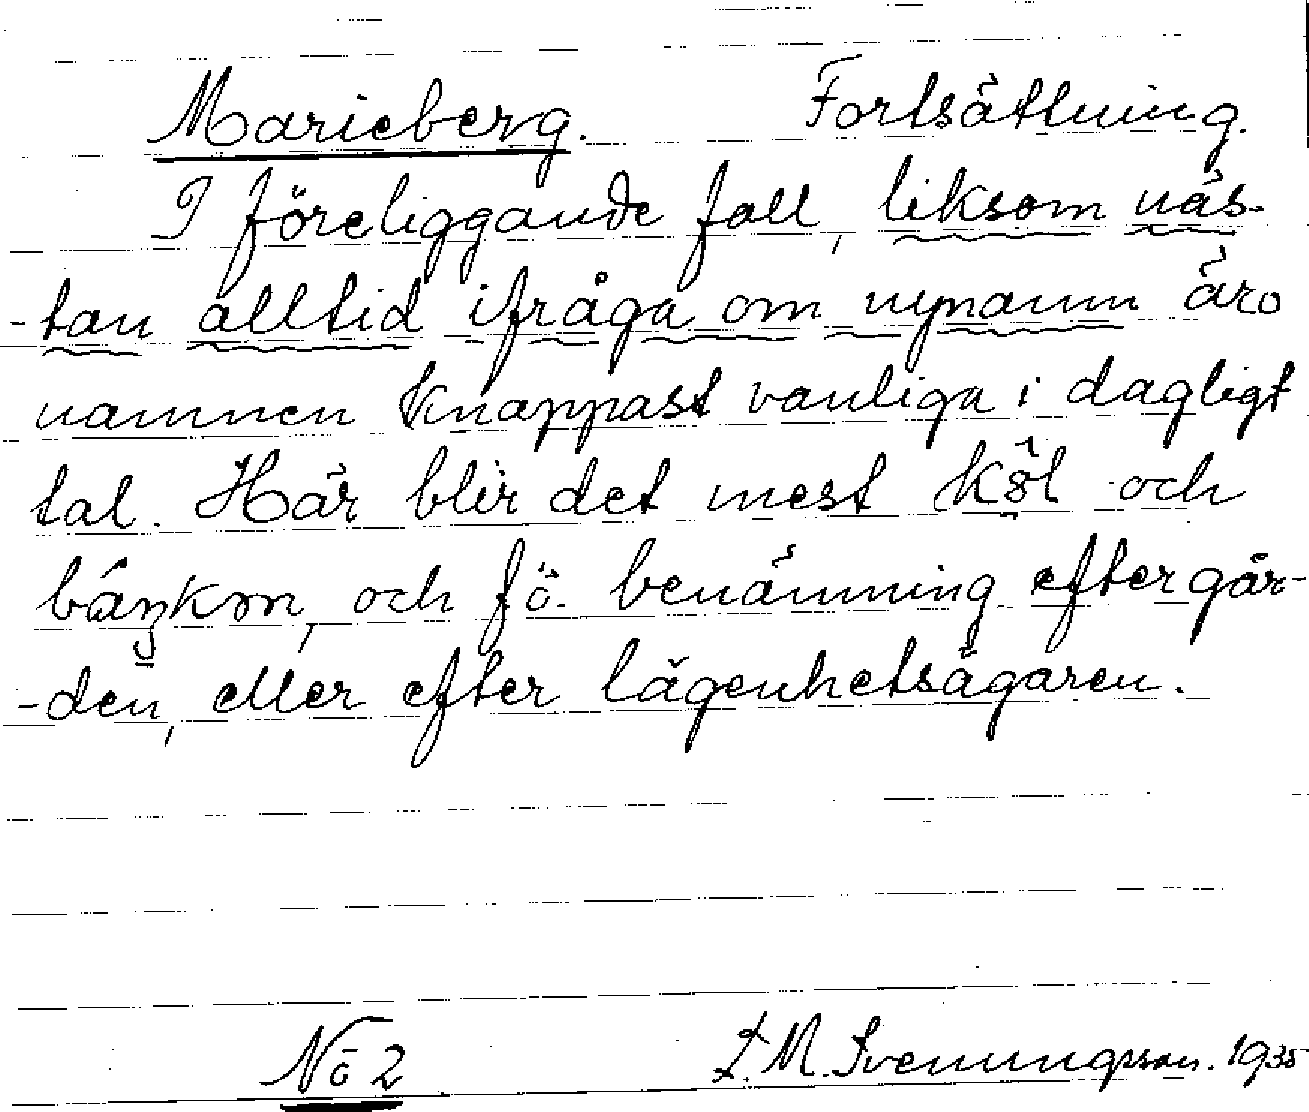 Marieberg. Fortsättning.
I föreliggande fall, liksom näs-
-tan alltid ifråga om nynamn äro
namnen knappast vanliga i dagligt
tal. Här blir det mest
och
och fö. benämning efter går-
-den, eller efter lägenhetsägaren.
No 2 L. M. Svenungsson. 1935